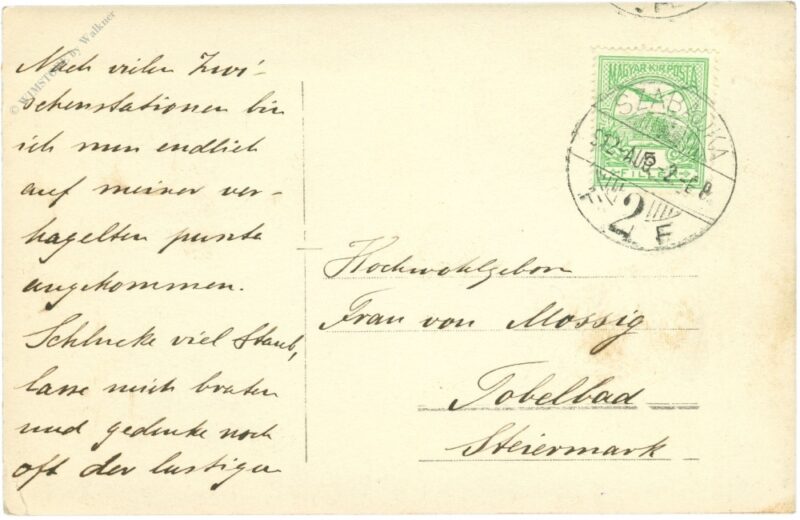 © WIMSTORE by Walkner
Nach vielen Zwi-
schenstationen bin
ich nun endlich
auf meiner ver-
hagelten punta
angekommen.
Schlucke viel Staub,
lasse mich braten
und gedenke noch
oft der lustigen
MAGYAR KIR. POSTA
SZABADKA
912 AUG. -2
5
FILLÉR
2
F
Hochwohlgeborn
Frau von Mossig
Tobelbad
Steiermark